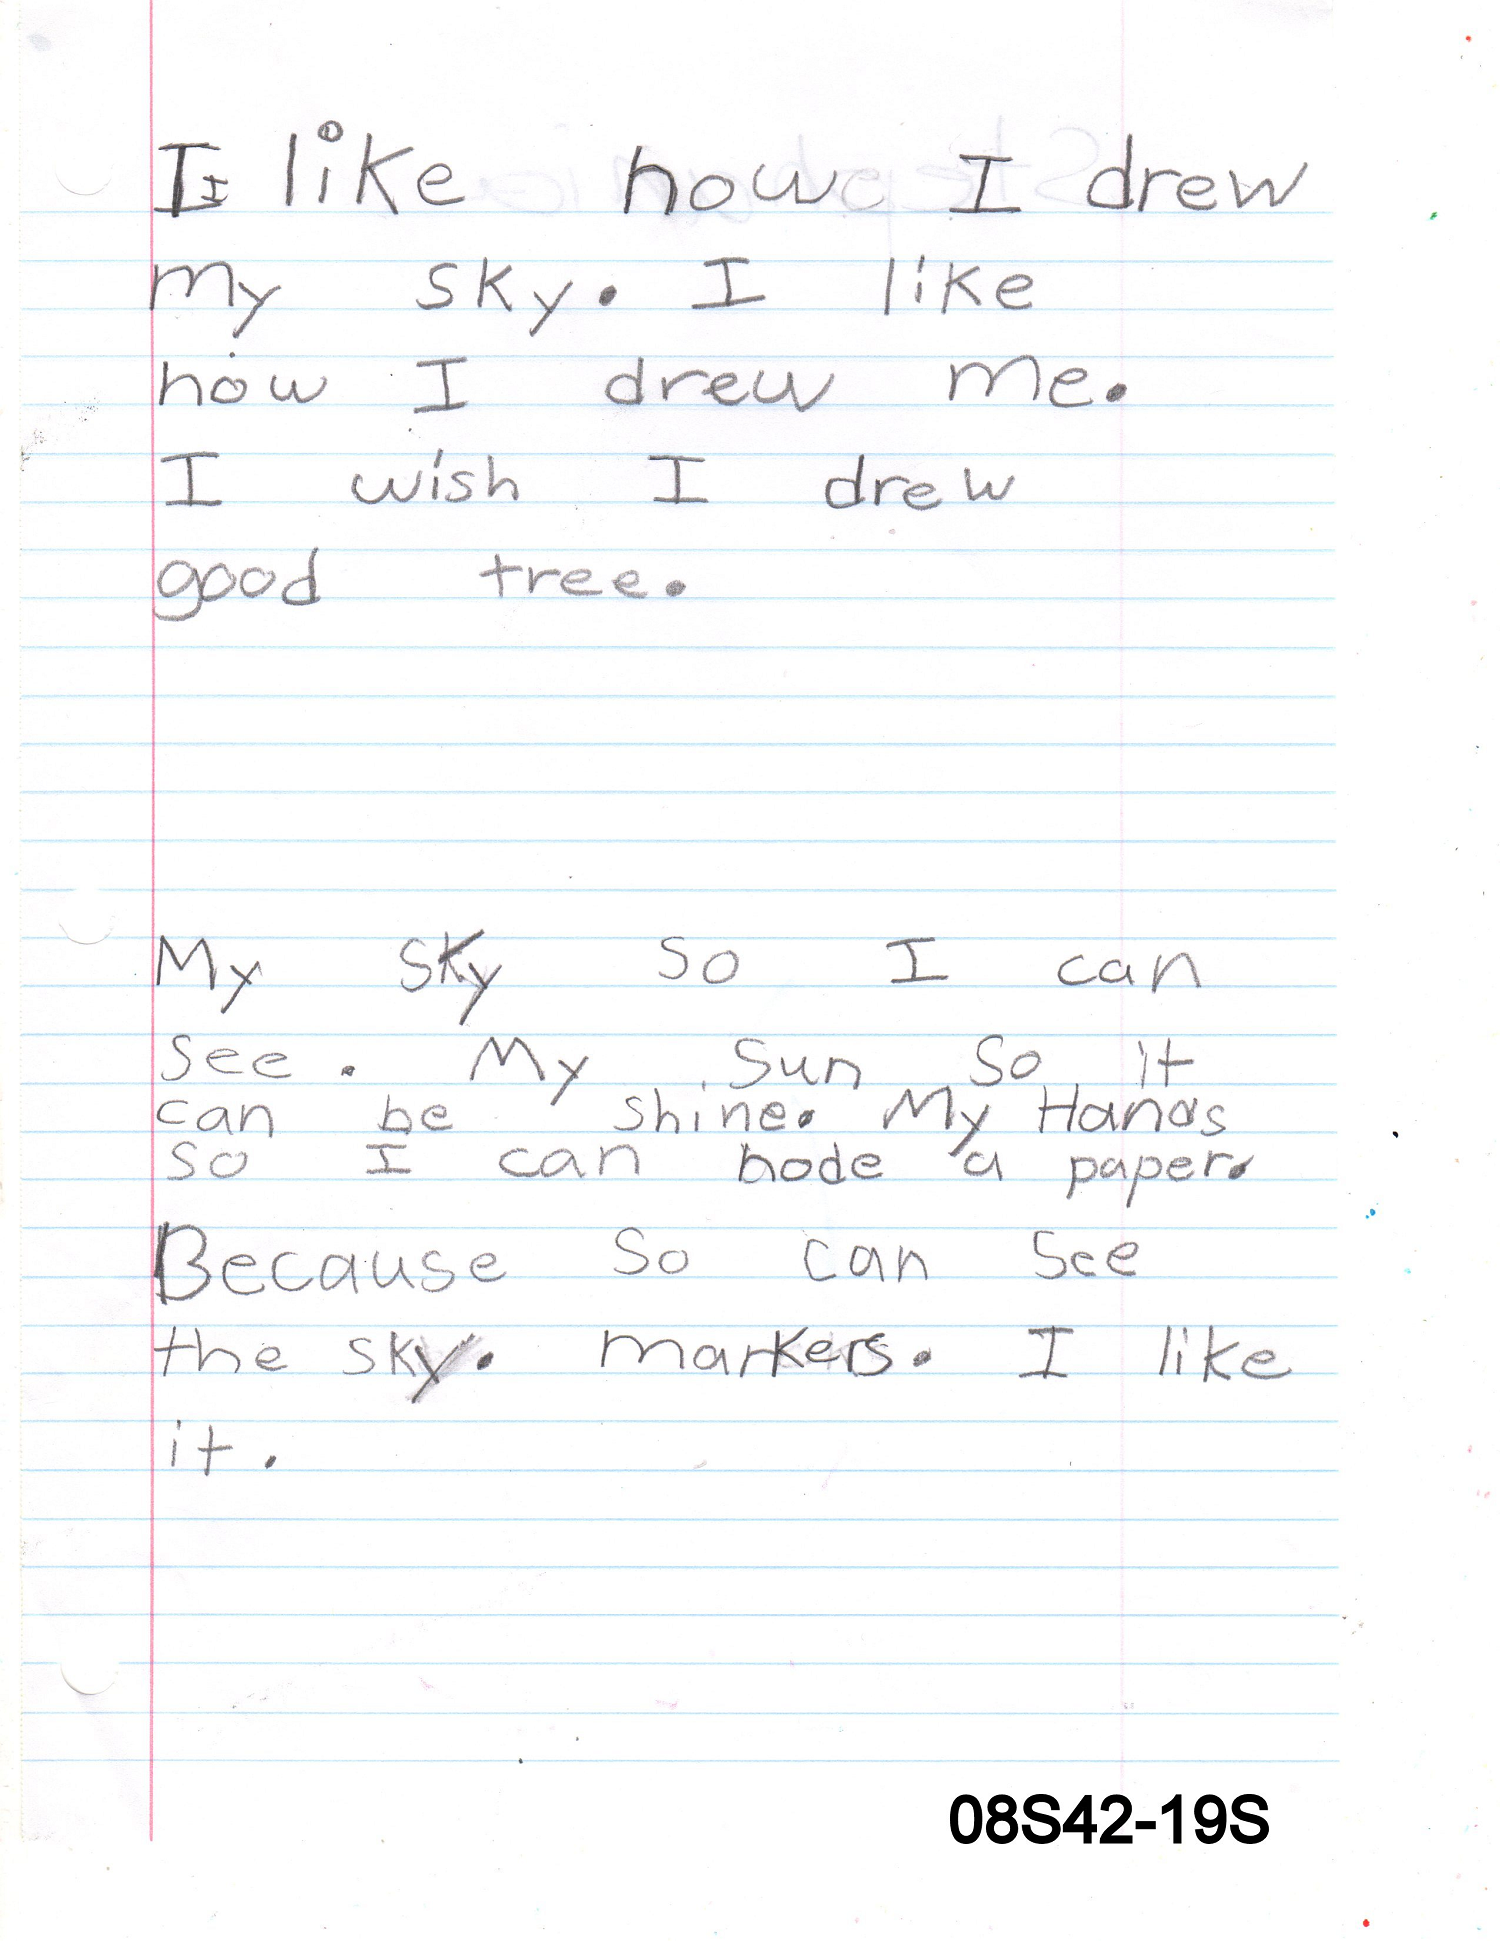 I like how I drew
my sky. I like
how I drew me.
I wish I drew
good tree.
My sky so I can
see. My sun so it
can be shine. My Hands
so I can hode a paper.
Because so can see
the sky. markers. I like
it.
08S42-19S